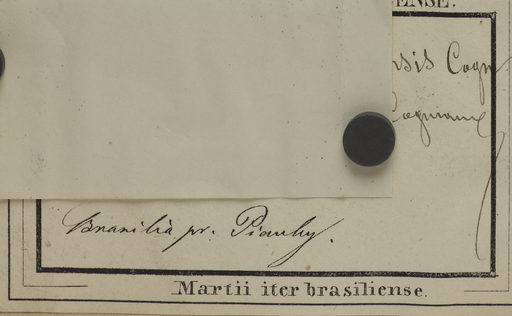 ENSE.
nsis Cogn
Cogniaux
Brasilia pr. Piauhy.
Martii iter brasiliense.